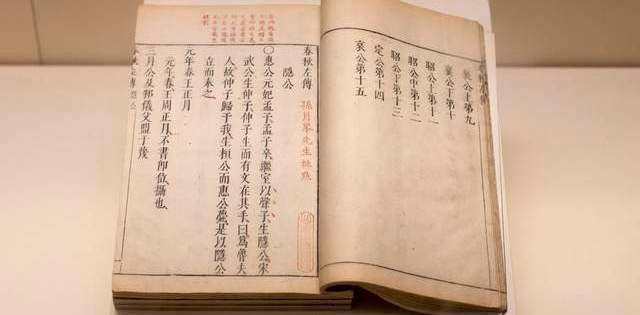 襄公上第九
襄公下第十
昭公上第十一
昭公中第十二
昭公下第十三
定公第十四
哀公第十五
春秋左傳 孫月峯先生批點
隱公
○惠公元妃孟子孟子卒繼室以聲子生隱公宋
武公生仲子仲子生而有文在其手曰爲魯夫
人故仲子歸于我生桓公而惠公薨是以隱公
立而奉之
元年春王正月
元年春王周正月不書即位攝也
三月公及邾儀父盟于蔑